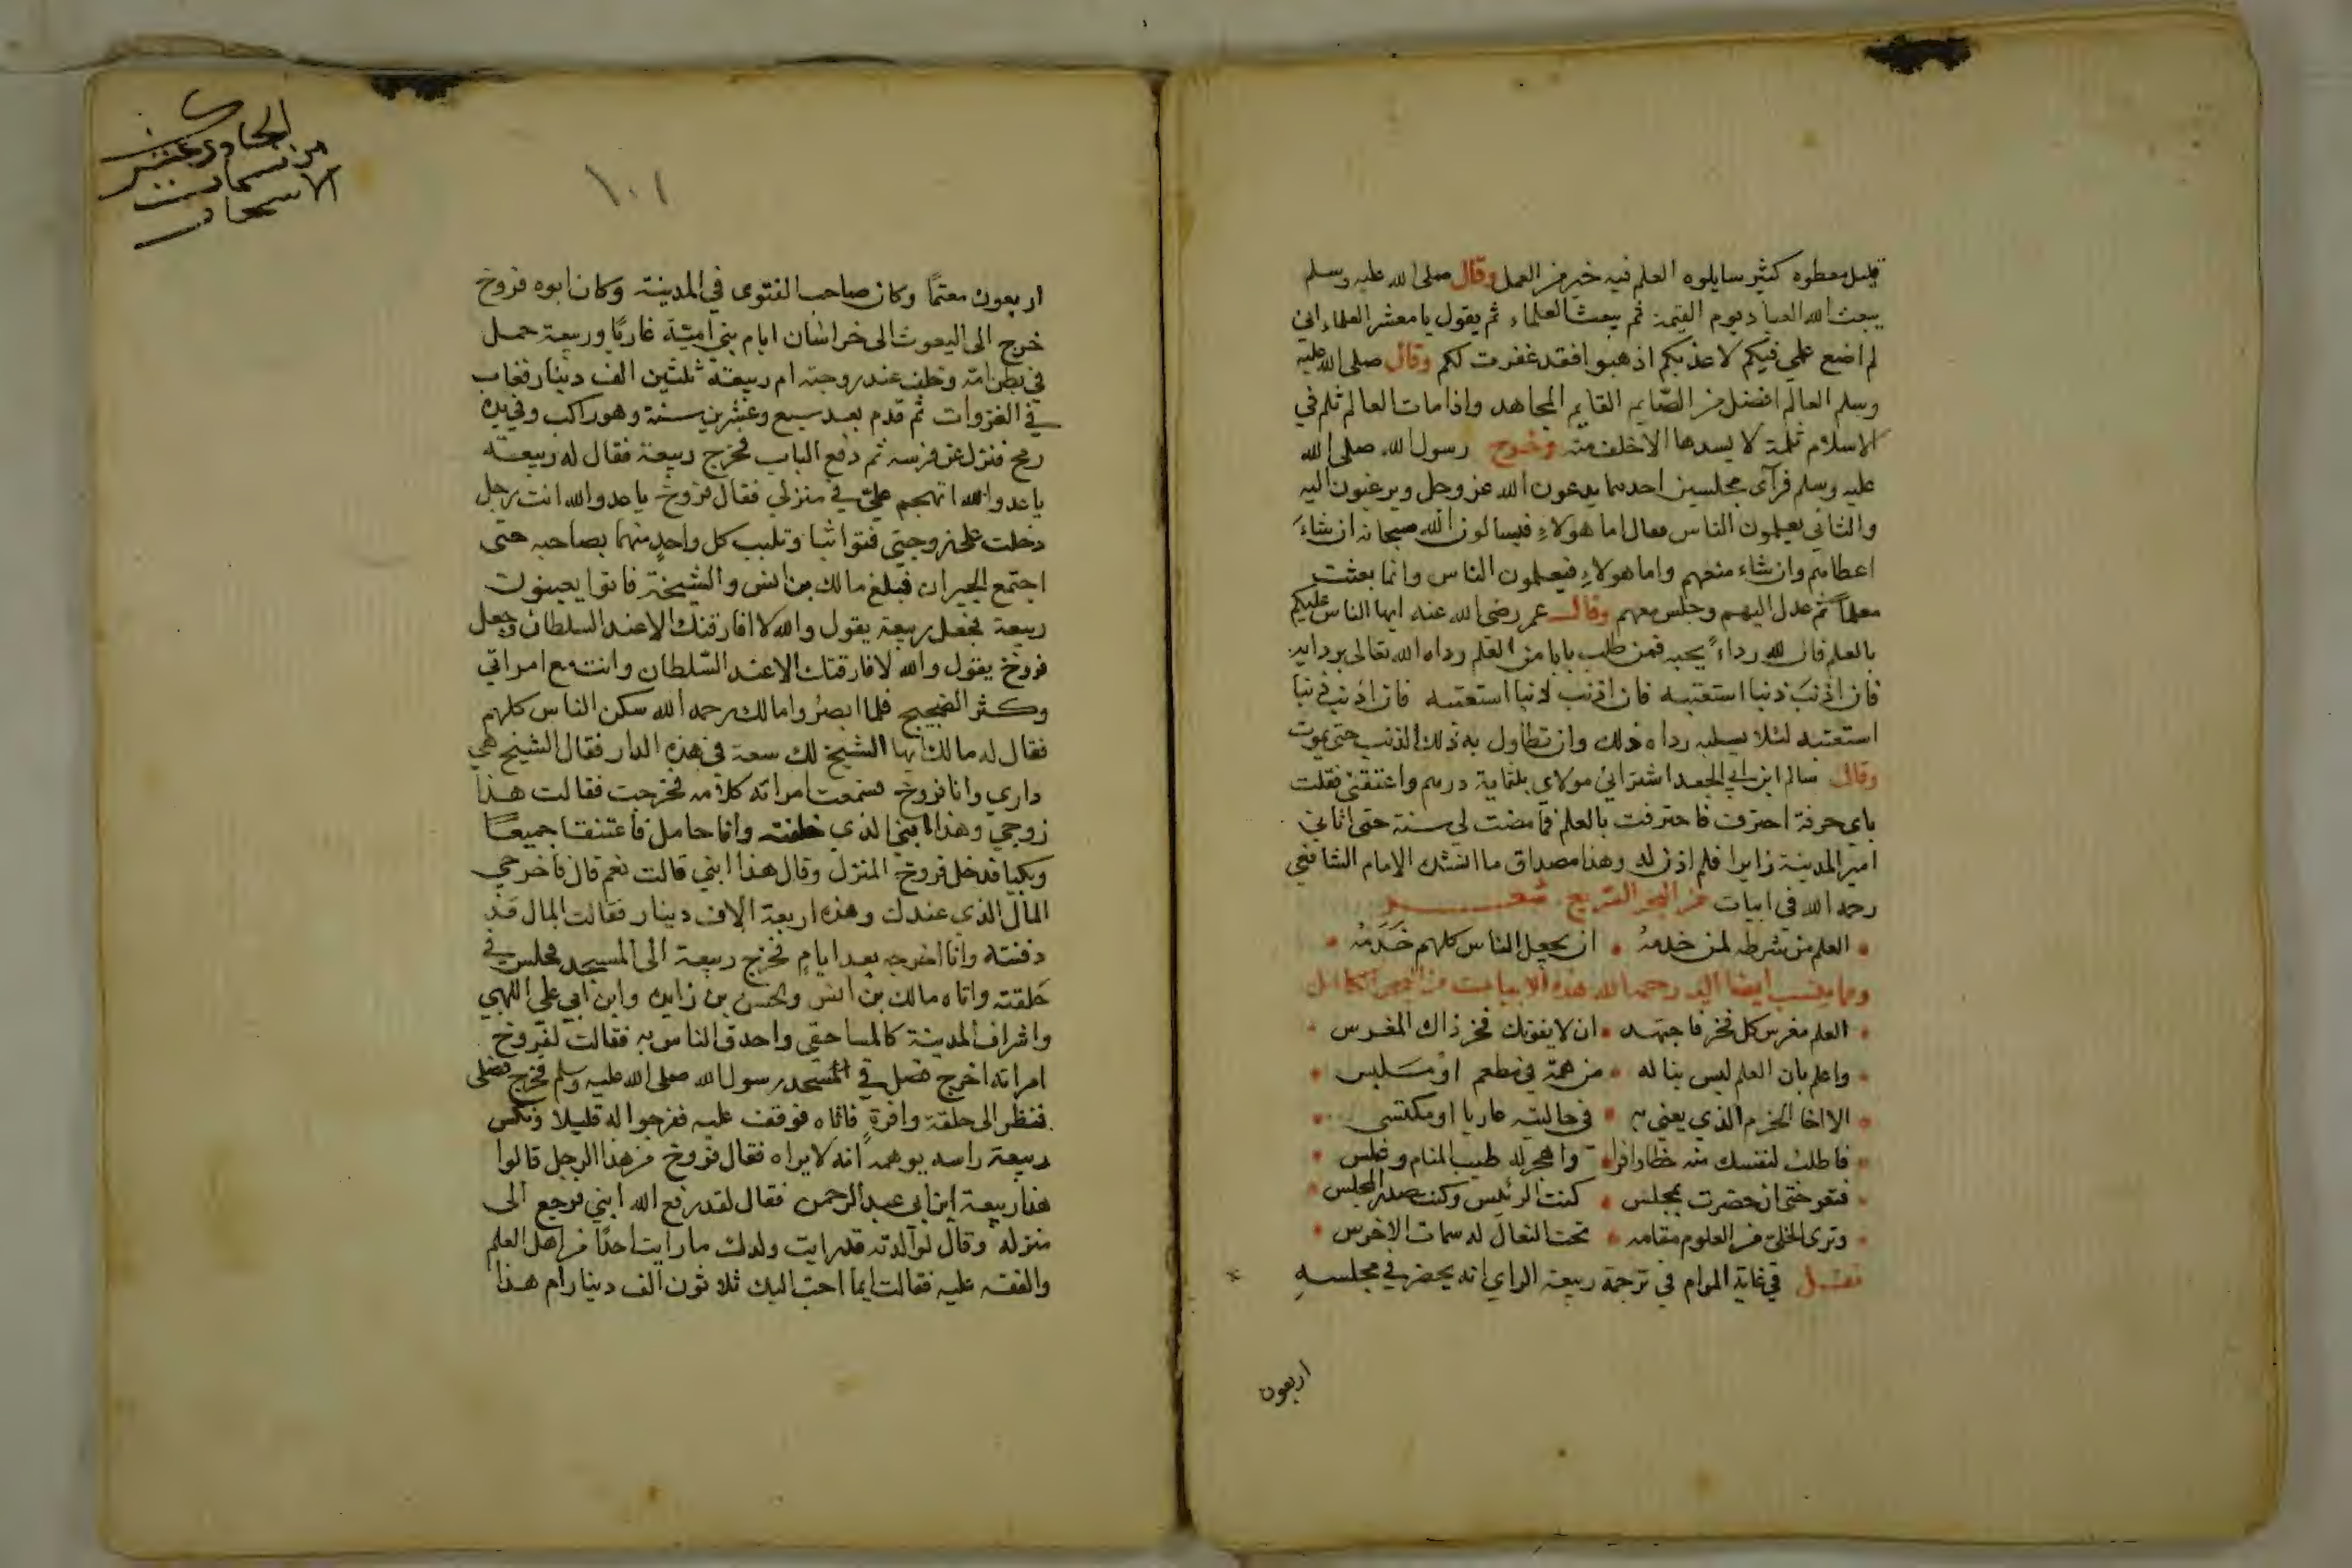 قليل معطوه كثير سايلوه العلم فيه خير من العمل وقال صلى الله عليه وسلم
يبعث الله العباد يوم القيمة ثم يبعث العلماء ثم يقول يا معشر العلماء اني
لم اضع علمي فيكم لاعذبكم اذهبوا فقد غفرت لكم وقال صلى الله عليه
وسلم العالم افضل من الصايم القايم المجاهد واذا مات العالم ثلم في
الاسلام ثلمة لا يسدها الا خلف منه وخرج رسول الله صلى الله
عليه وسلم فرآى مجلسين احدهما يدعون الله عز وجل ويرغبون اليه
والثاني يعلمون الناس فقال اما هولاء فيسالون الله سبحانه ان شاء
اعطاهم وان شاء منعهم واما هولاء فيعلمون الناس وانما بعثت
معلما ثم عدل اليهم وجلس معهم وقال عمر رضي الله عنه ايها الناس عليكم
بالعلم فان لله رداء يحبه فمن طلب بابا من العلم رداه الله تعالى بردايه
فان اذنب ذنبا استعتبه فان اذنب ذنبا استعتبه فان اذنب ذنبا
استعتبه لئلا يسلبه رداه ذلك وان تطاول به ذلك الذنب حتى يموت
وقال سالم ابن ابي الجعد اشتراني مولاي بثلثماية درهم واعتقني فقلت
باي حرفة احترف فاحترفت بالعلم فما مضت لي سنة حتى اتاني
امير المدينة زايرا فلم اذن له وهذا مصداق ما انشدك الامام الشافعي
رحمه الله في ابيات من البحر السريع شعر
العلم من شرطه لمن خدمه ان يجعل الناس كلهم خدمه
ومما ينسب ايضا اليه رحمه الله هذه الابيات من البحر الكامل
العلم مغرس كل فخر فاجتهد ان لا يفوتك فخر ذاك المغرس
واعلم بان العلم ليس يناله من همه في مطعم او ملبس
الا اخا الحزم الذي يعني به في حالتيه عاريا او مكتسي
فاطلب لنفسك منه حظا وافرا واهجر له طيب المنام وغلس
فتعو حتى ان حضرت بمجلس كنت الرئيس وكنت صدر المجلس
وترى الخلي من العلوم مقامه تحت النعال له سمات الاخرس
فصل في غاية المرام في ترجمة ربيعة الراي انه يحضر في مجلسه
اربعون
الحادي عشر
من نسمات
الاسحار
١٠١
اربعون معتما وكان صاحب الفتوى في المدينة وكان ابوه فروخ
خرج الى البعوث الى خراسان ايام بني امية غازيا وربيعة حمل
في بطن امه وخلف عند زوجته ام ربيعة ثلثين الف دينار فغاب
في الغزوات ثم قدم بعد سبع وعشرين سنة وهو راكب وفي يده
رمح فنزل عن فرسه ثم دفع الباب فخرج ربيعة فقال له ربيعة
يا عدو الله اتهجم علي في منزلي فقال فروخ يا عدو الله انت رجل
دخلت على زوجتي فتواثبا وتلبب كل واحد منهما بصاحبه حتى
اجتمع الجيران فبلغ مالك بن انس والشيخة فاتوا يعينون
ربيعة فجعل ربيعة يقول والله لا افارقتك الا عند السلطان وجعل
فروخ يقول والله لا فارقتك الا عند السلطان وانت مع امراتي
وكثر الضجيج فلما ابصروا مالك رحمه الله سكن الناس كلهم
فقال له مالك ايها الشيخ لك سعة في هذه الدار فقال الشيخ هي
داري وانا فروخ فسمعت امراته كلامه فخرجت فقالت هذا
زوجي وهذا ابني الذي خلفته وانا حامل فاعتنقا جميعا
وبكيا فدخل فروخ المنزل وقال هذا ابني قالت نعم قال فاخرجي
المال الذي عندك وهذه اربعة الاف دينار فقالت المال قد
دفنته وانا اخرجه بعد ايام فخرج ربيعة الى المسجد فجلس في
حلقته واتاه مالك بن انس والحسن بن زايد وابن ابي علي اللهبي
واشراف المدينة كالمساحقي واحدق الناس به فقالت لفروخ
امراته اخرج فصل في مسجد رسول الله صلى الله عليه وسلم فخرج فصلى
فنظر الى حلقة وافرة فاتاه فوقف عليه ففرجوا له قليلا ونكس
ربيعة راسه يوهمه انه لا يراه فقال فروخ من هذا الرجل قالوا
هذا ربيعة ابن ابي عبد الرحمن فقال لقد رفع الله ابني فرجع الى
منزله وقال لوالدته قد رايت ولدك ما رايت احدا من اهل العلم
والفقه عليه فقالت ايما احب اليك ثلاثون الف دينار ام هذا